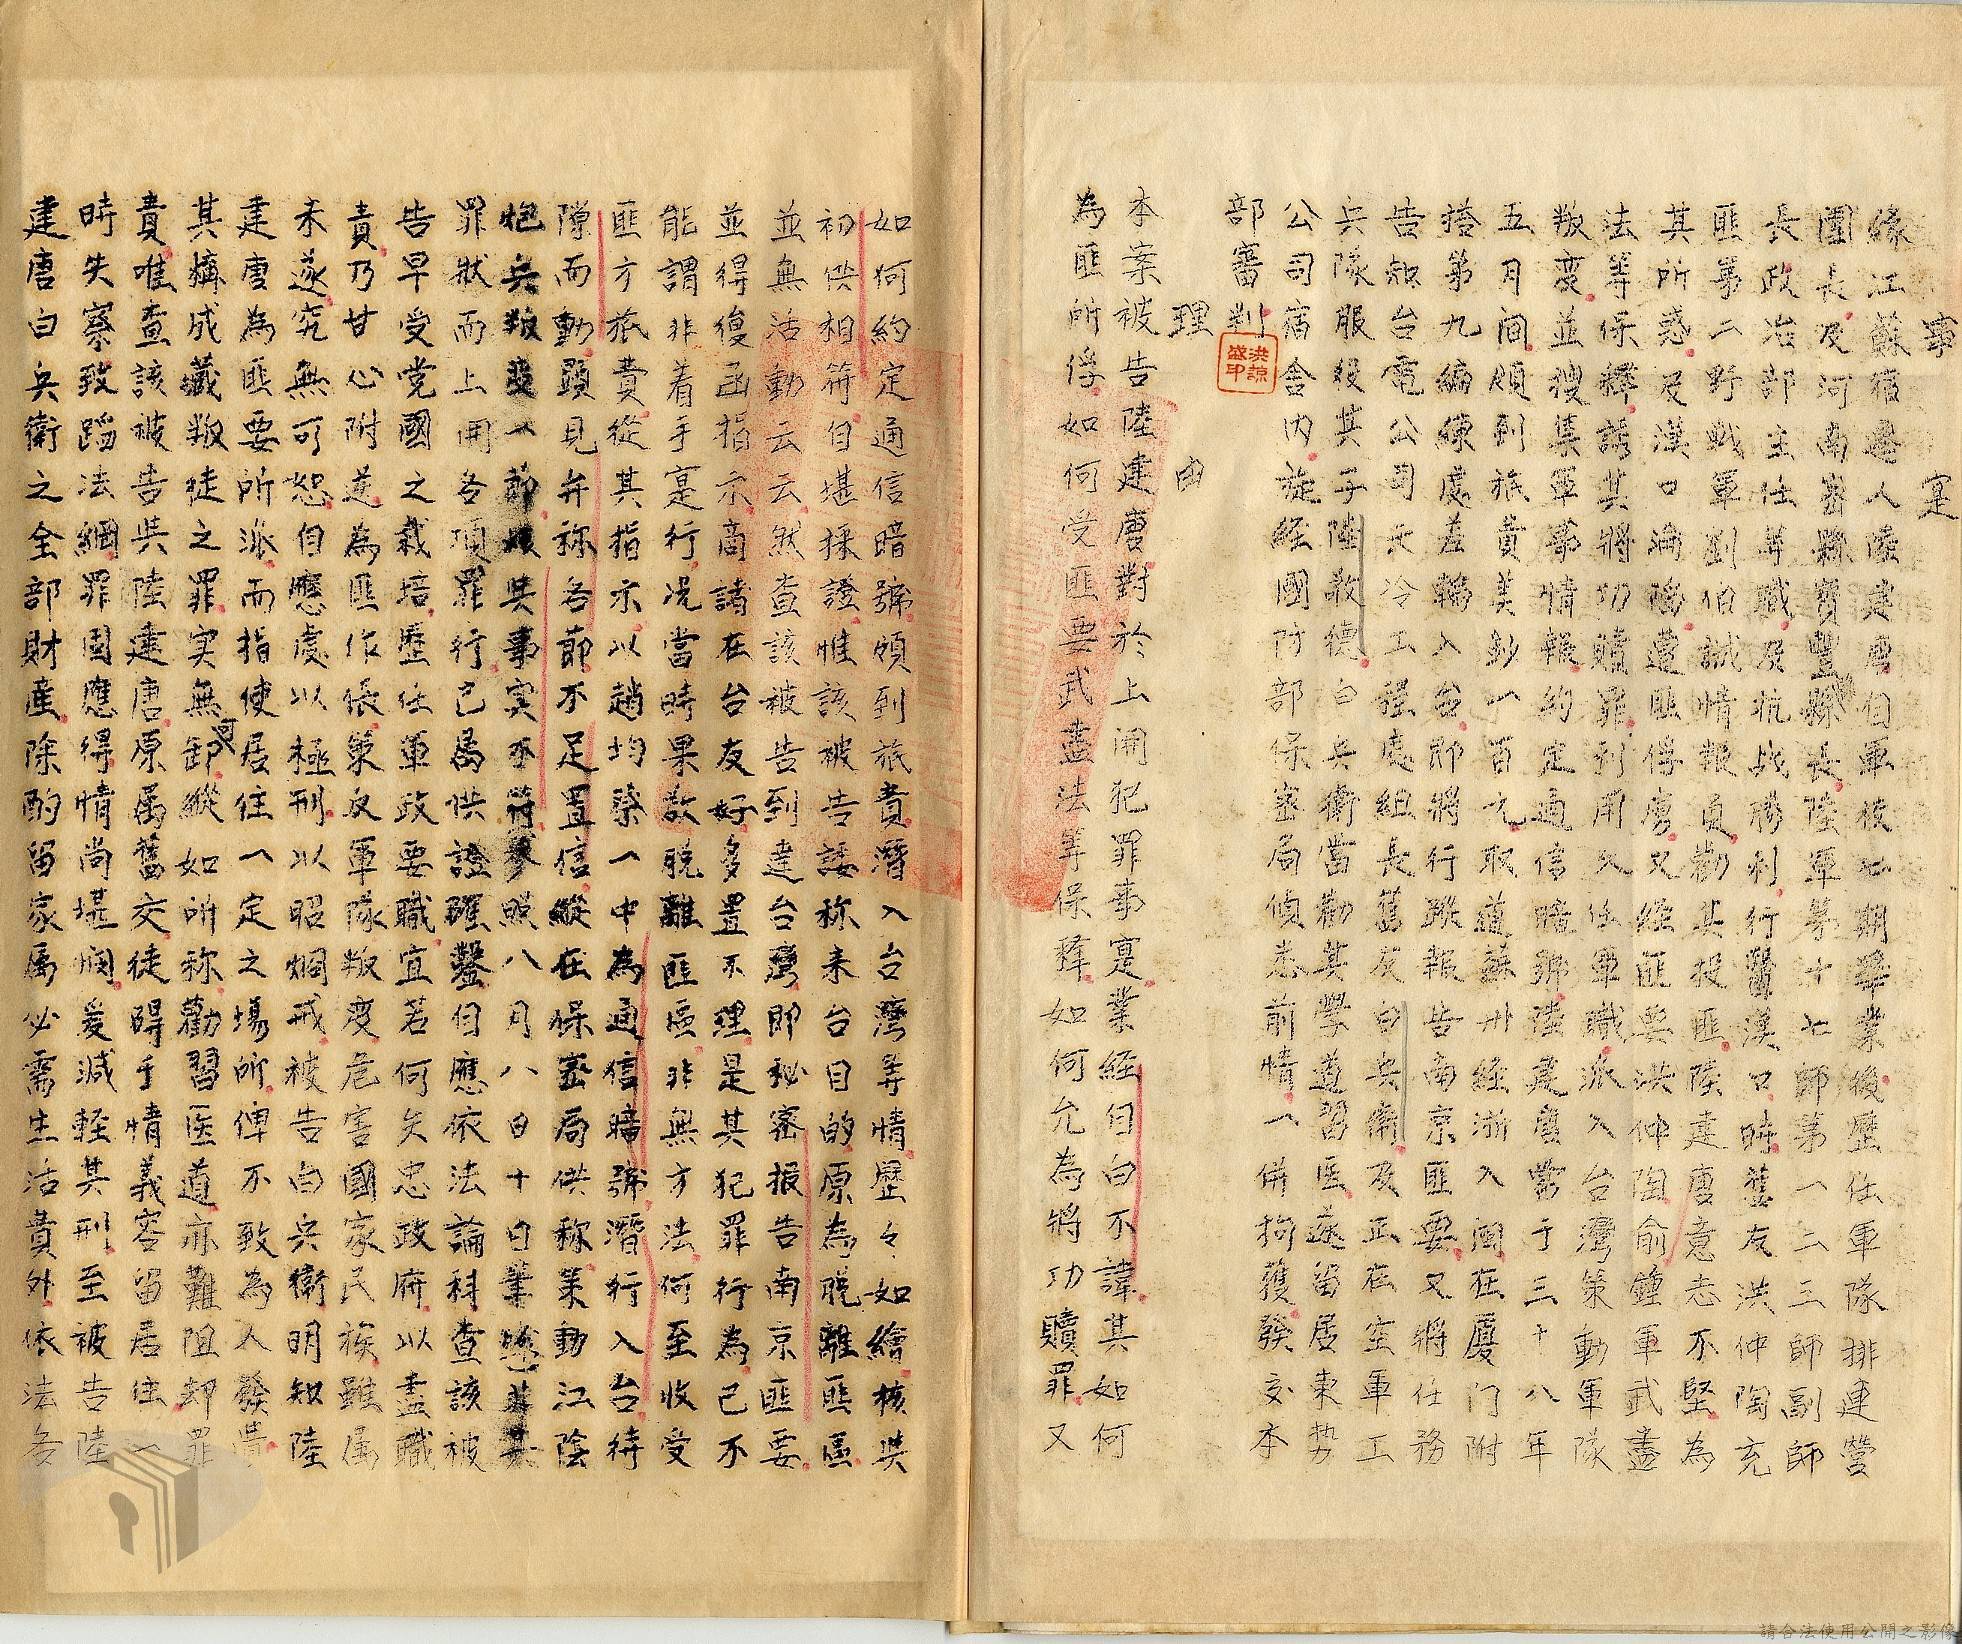 事實
緣江蘇宿遷人陸建唐自軍校七期畢業後歷任軍隊排連營
團長及河南密縣寶豐縣長陸軍第十七師第一二三師副師
長政治部主任等職及抗战勝利行醫漢口時舊友洪仲陶充
匪第二野战軍劉伯誠情報員勸其投匪陸建唐意志不堅為
其所惑及漢口淪陷遭匪俘虜又經匪要洪仲陶俞鍾軍武盡
法等保釋誘其將功贖罪利用久任軍職派入台灣策動軍隊
叛变並搜集軍事情報約定通信暗號陸建唐當于三十八年
五月間領到旅費美鈔一百元取道蘇州経浙入閩在廈门附
搭第九編練處差輪入台即將行蹤報告南京匪要又將任務
告知台電公司天冷工程處組長舊友白兵衛及正在空軍工
兵隊服役其子陸敬德白兵衛當勸其學道習医遂留居東势
公司宿舍内旋經國防部保密局偵悉前情一併拘獲發交本
部審判
洪諒盛印
理由
本案被告陸建唐對於上開犯罪事寔業経自白不諱其如何
為匪所俘如何受匪要武盡法等保釋如何允為將功贖罪又
如何約定通信暗號領到旅費潛入台灣等情歷々如繪核與
初供相符自堪採證惟該被告諉称来台目的原為脱離匪區
並無活動云云然查該被告到達台灣即秘密报告南京匪要
並得復函指示商諸在台友好多置不理是其犯罪行為已不
能謂非着手寔行况當時果敢脱離匪區非無方法何至收受
匪方旅費從其指示以趙均蔡一中為通信暗號潛行入台待
隙而動顕見弁称各節不足置信縱在保密局供称策動江陰
炮兵叛变一節核與事实不符參照八月八日十日筆錄其
罪狀而上開各項罪行已属供證確鑿自應依法論科查該被
告早受党國之栽培歷任軍政要職宜若何矢忠政府以盡職
責乃甘心附逆為匪作倀策反軍隊叛变危害國家民族雖属
未遂究無可恕自應處以極刑以昭烱戒被告白兵衛明知陸
建唐為匪要所派而指使居住一定之場所俾不致為人發覺
其搆成藏叛徒之罪实無可卸縱如所称勸習医道亦難阻却罪
責唯查該被告與陸建唐原属舊交徒碍于情義容留居住一
時失察致蹈法網罪固應得情尚堪憫爰減軽其刑至被告陸
建唐白兵衛之全部財產除酌留家属必需生活費外依法各
請合法使用公開之影像